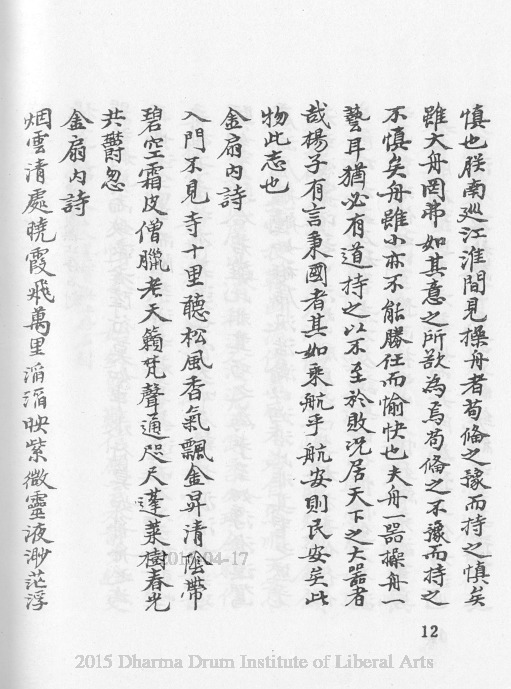 慎也朕南巡江淮間見操舟者茍俻之豫而持之慎矣
雖大舟罔弗如其意之所欲為焉茍俻之不豫而持之
不慎矣舟雖小亦不能勝任而愉快也夫舟一器操舟一
藝耳猶必有道持之以不至於敗况居天下之大器者
哉楊子有言秉國者其如乘航乎航安則民安矣此
物此志也
金扇内詩
入門不見寺十里聽松風香氣飄金界清陰帶
碧空霜皮僧臘老天籟梵聲通咫尺蓬萊樹春光
共鬱怱
金扇内詩
烟雲清處曉霞飛萬里滔滔映紫微靈液渺茫浮
12
2010-04-17
2015 Dharma Drum Institute of Liberal Arts